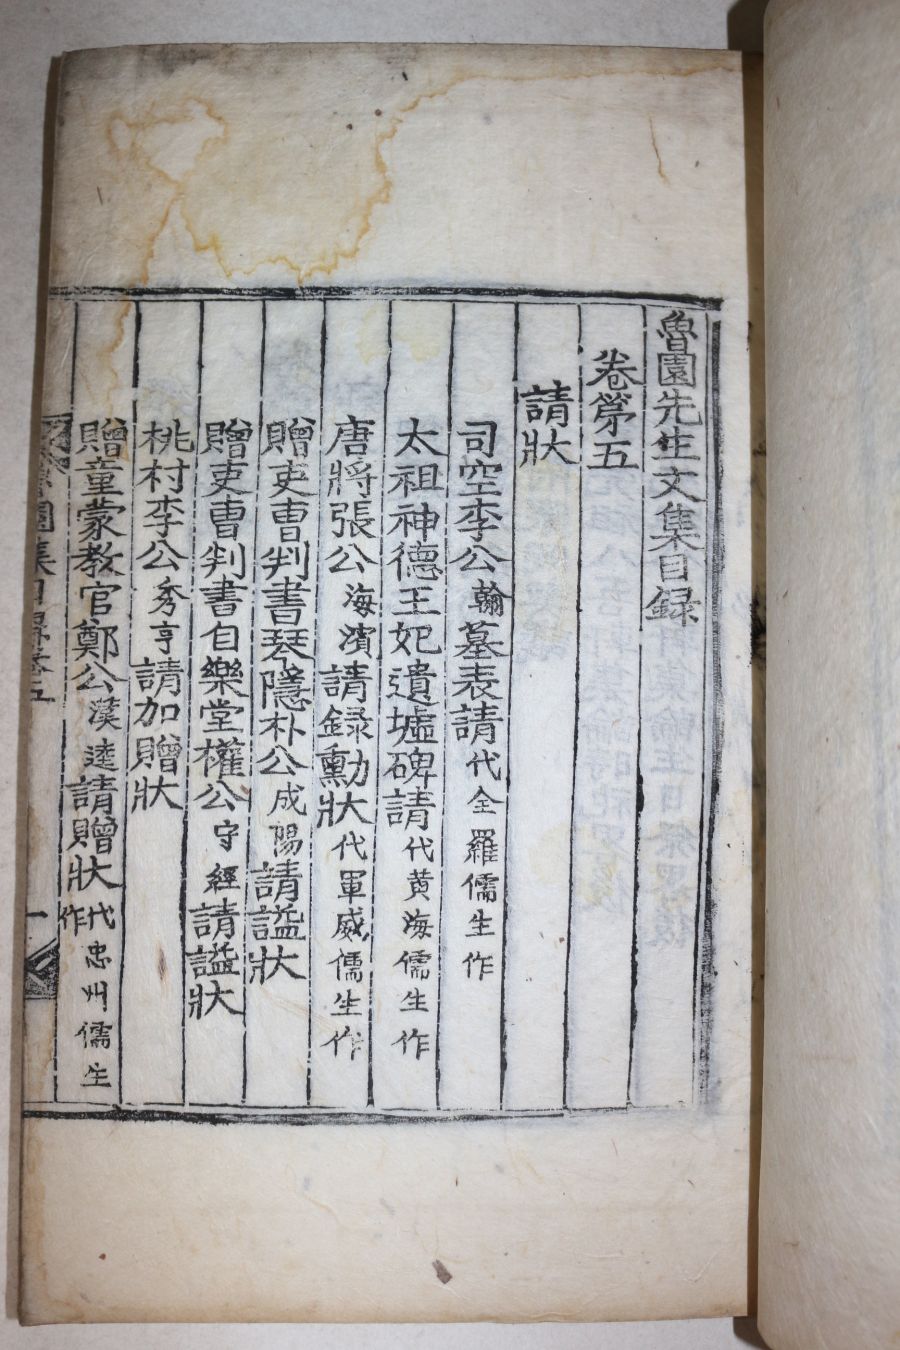 魯園先生文集目録
卷第五
請狀
司空李公翰墓表請代全羅儒生作
太祖神德王妃遺墟碑請代黄海儒生作
唐將張公海濱請録勳狀代軍威儒生作
贈吏曺判書琴隱朴公成陽請謚狀
贈吏曺判書自樂堂權公守經請謚狀
桃村李公秀亨請加贈狀
贈童蒙教官鄭公漢逵請贈狀代忠州儒生作